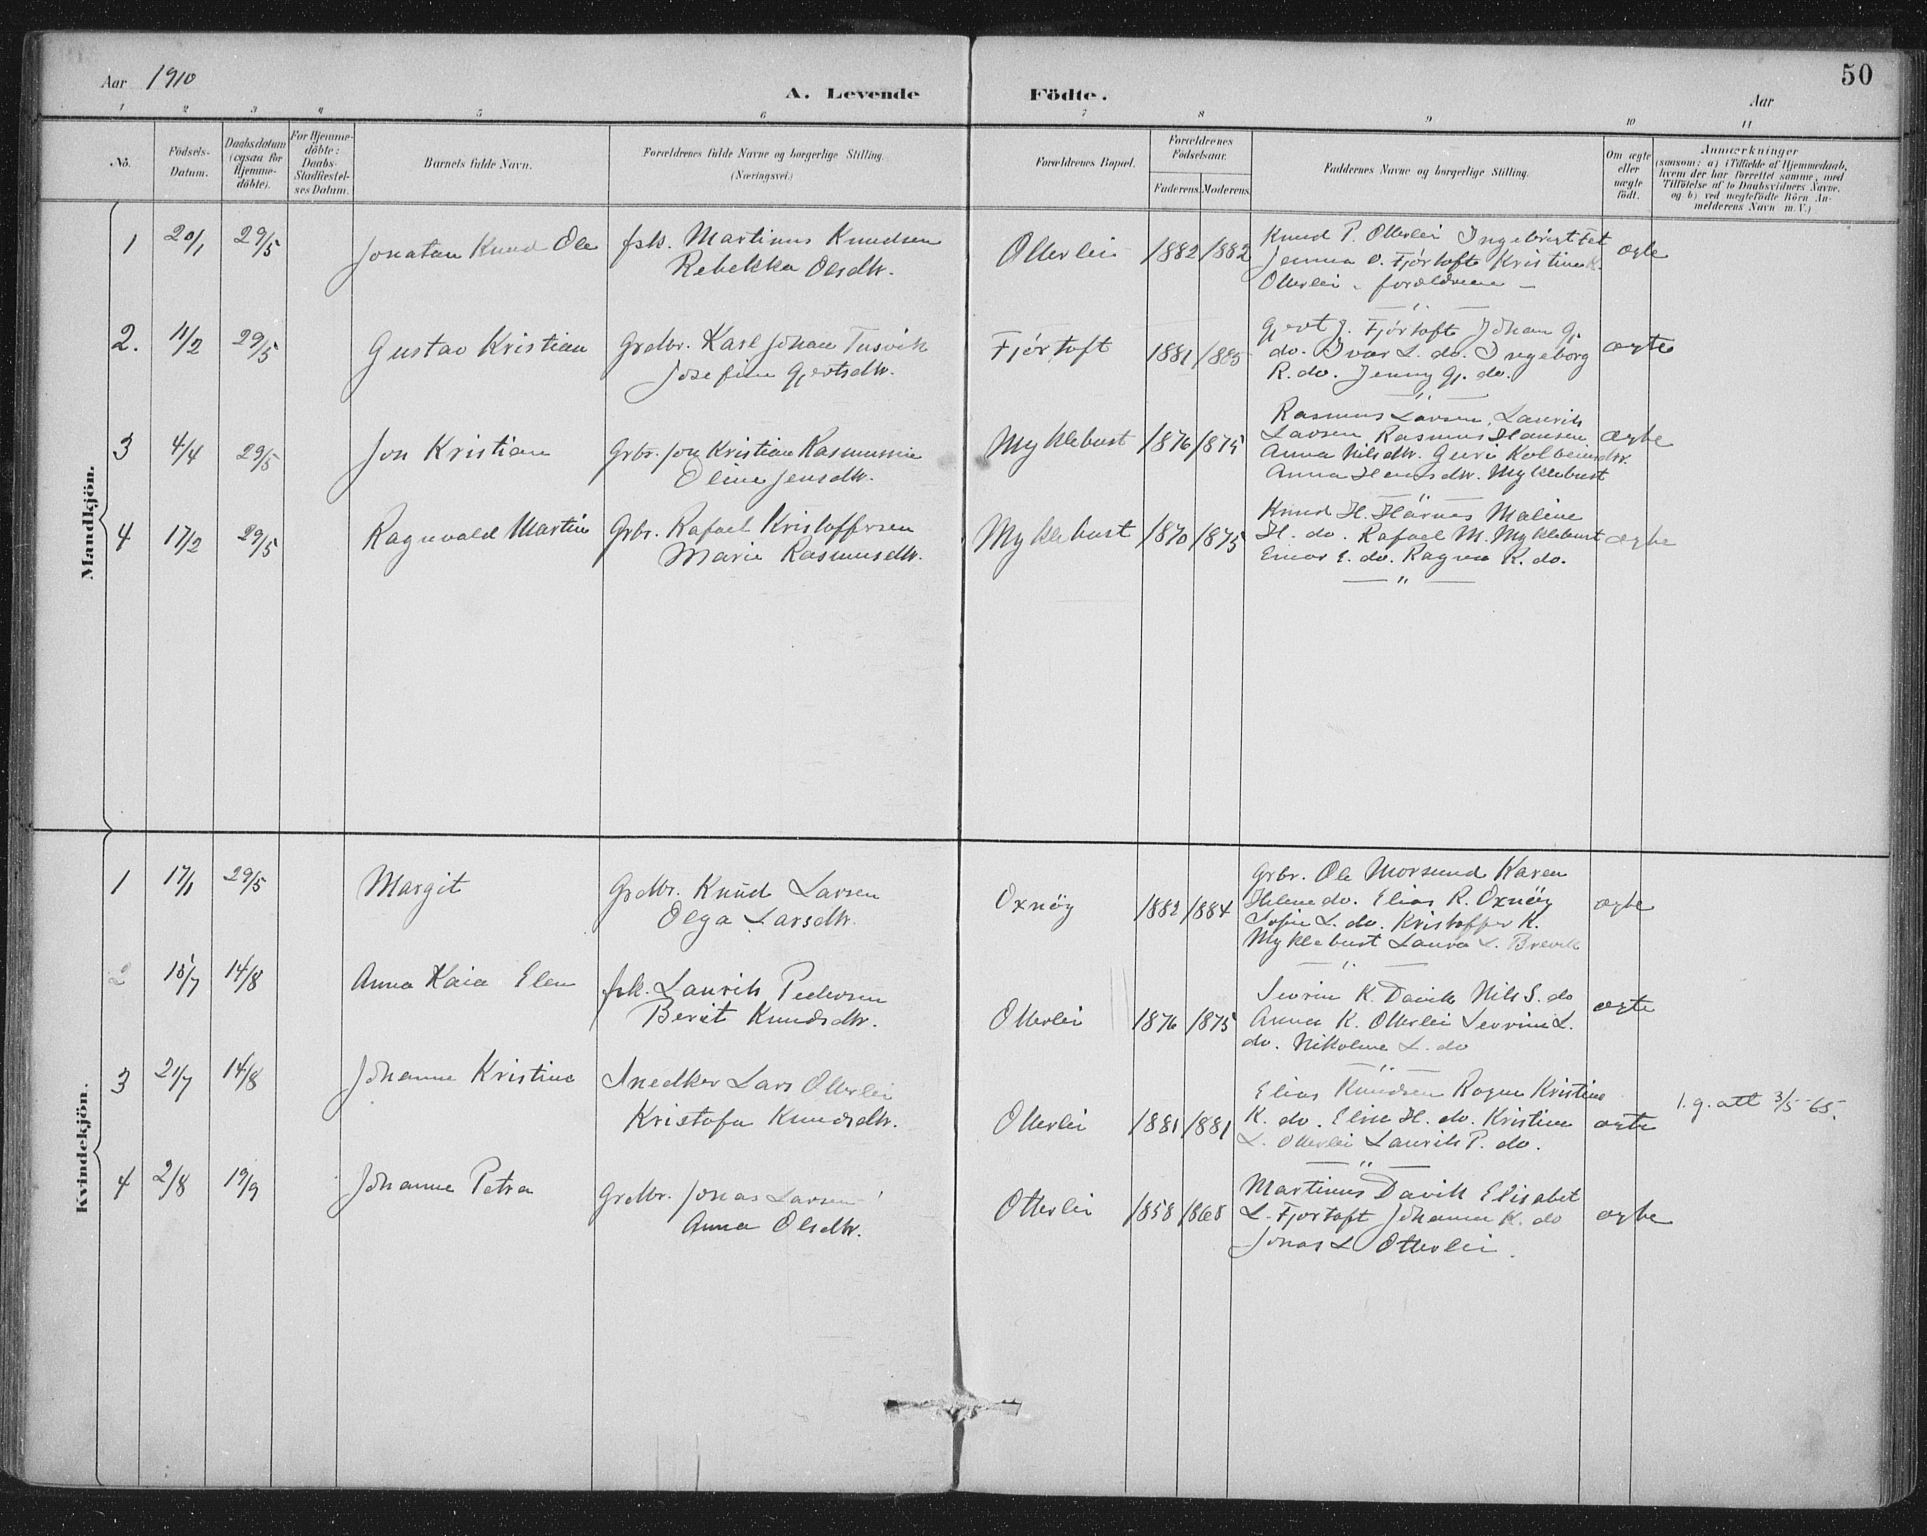 50
Aar 1910
A. Levende Födte.
Aar
1 2 3 4 5 6 7 8 9 10 11
No.
Födsels-
Datum.
Daabsdatum
(ogsaa for
Hjemme-
döbte).
For Hjemme-
döbte:
Daabs-
Stadfæstel-
ses Datum.
Barnets fulde Navn.
Forældrenes fulde Navne og borgerlige Stilling.
(Næringsvei.)
Forældrenes Bopæl.
Forældrenes
Födselsaar.
Faderens. Moderens.
Faddernes Navne og borgerlige Stilling.
Om ægte
eller
uægte
födt.
Anmærkninger
(saasom: a) i Tilfælde af Hjemmedaab,
hvem der har forrettet samme, med
Tilföielse af to Daabsvidners Navne,
og b) ved uægtefödte Börn An-
melderens Navn m. V.)
Mandkjön.
1 20/1 29/5 Jonatan Knud Ole
fsk. Martinus Knudsen
Rebekka Olsdtr.
Otterlei 1882 1882
Knud P. Otterlei Ingebrigt
Jemina O. Fjörtoft Kristine K.
Otterlei - forældrene -
ægte
2. 11/2 29/5 Gustav Kristian
Grdbr. Karl Johan Tusvik
Josefine Gjertsdtr.
Fjörtoft 1881 1885
Gjert J. Fjörtoft Johan Gj.
do. Ivar L. do. Ingeborg
R. do. Jenny Gj. do.
ægte
3 4/4 29/5 Jon Kristian
Grbr. Jon Kristian Rasmussen
Oline Jensdtr.
Myklebust 1876 1875
Rasmus Larsen, Laurits
Larsen Rasmus Hansen
Anna Nilsdtr. Guri Kolbeinsdtr.
Anna Hansdtr. Myklebust
ægte
4 17/2 29/5 Ragnvald Martin
Grbr. Rafael Kristoffersen
Marie Rasmusdtr.
Myklebust 1870 1875
Knud H. Härnes Maline
H. do. Rafael M. Myklebust
Einar E. do. Ragna K. do.
ægte
Kvindekjön.
1 17/1 29/5 Margit
Grdbr. Knud Larsen
Olga Larsdtr.
Oxnöy 1882 1884
Grbr. Ole Morsund Karen
Helene do. Elias R. Oxnöy
Sofie L. do. Kristoffer K.
Myklebust Laura L. Brevik
ægte
2 15/7 14/8 Anna Kaia Elen
fsk. Laurits Pedersen
Berit Knudsdtr.
Otterlei 1876 1875
Sevrin K. Davik Nils S. do
Anna K. Otterlei Sevrine L.
do. Nikoline L. do
ægte
3 21/7 14/8 Johanne Kristine
Snedker Lars Otterlei
Kristofa Knudsdtr.
Otterlei 1881 1881
Elias Knudsen Ragna Kristine
K. do. Eline H. do. Kristine
L. Otterlei Laurits P. do.
ægte
1. g. att 3/5-65.
4 2/8 19/9 Johanne Petra
Grdbr. Jonas Larsen
Anna Olsdtr.
Otterlei 1858 1868
Martinus Davik Elisabet
L. Fjortoft Johanna K. do
Jonas L Otterlei.
ægte